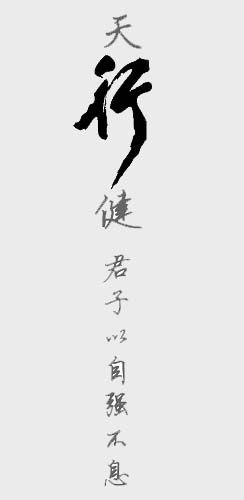 天行健君子以自强不息